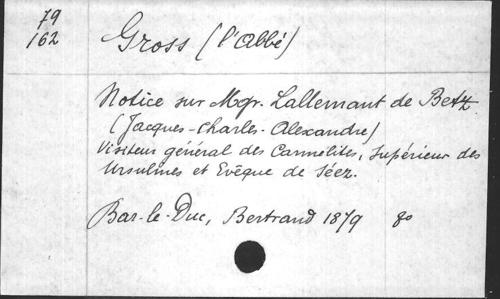 79
162
Gross (l'abbé)
Notice sur Mgr. Lallemant de Betz
(Jacques-Charles-Alexandre)
Visiteur général des Carmélites, Supérieur des
Ursulines et Evêque de Séez.
Bar-le-Duc, Bertrand 1879 8o